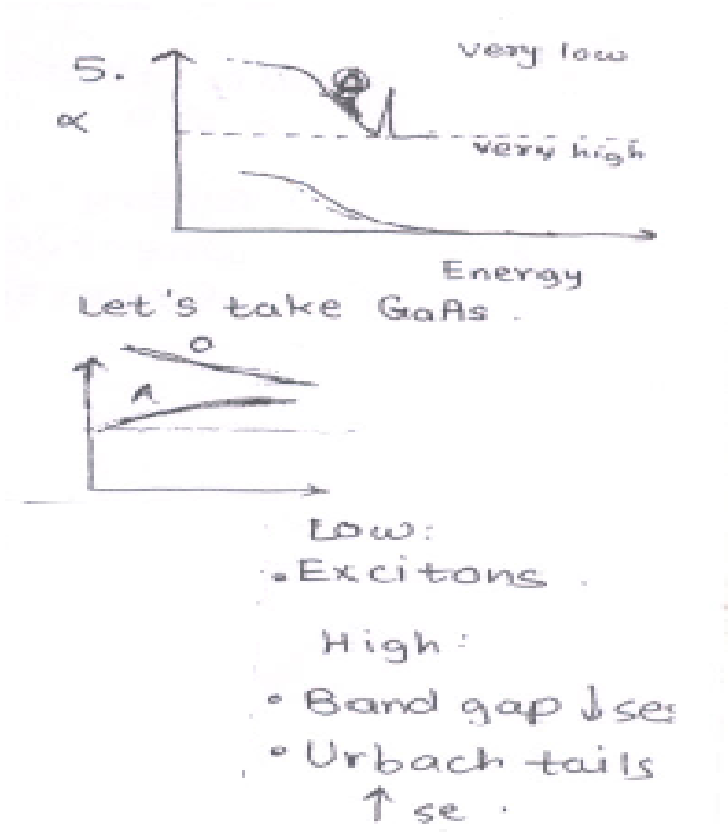 5.
very low
∝
very high
Energy
Let's take GaAs.
O
A
Low:
• Excitons
High:
• Band gap ↓ses
• Urbach tails
↑ se.